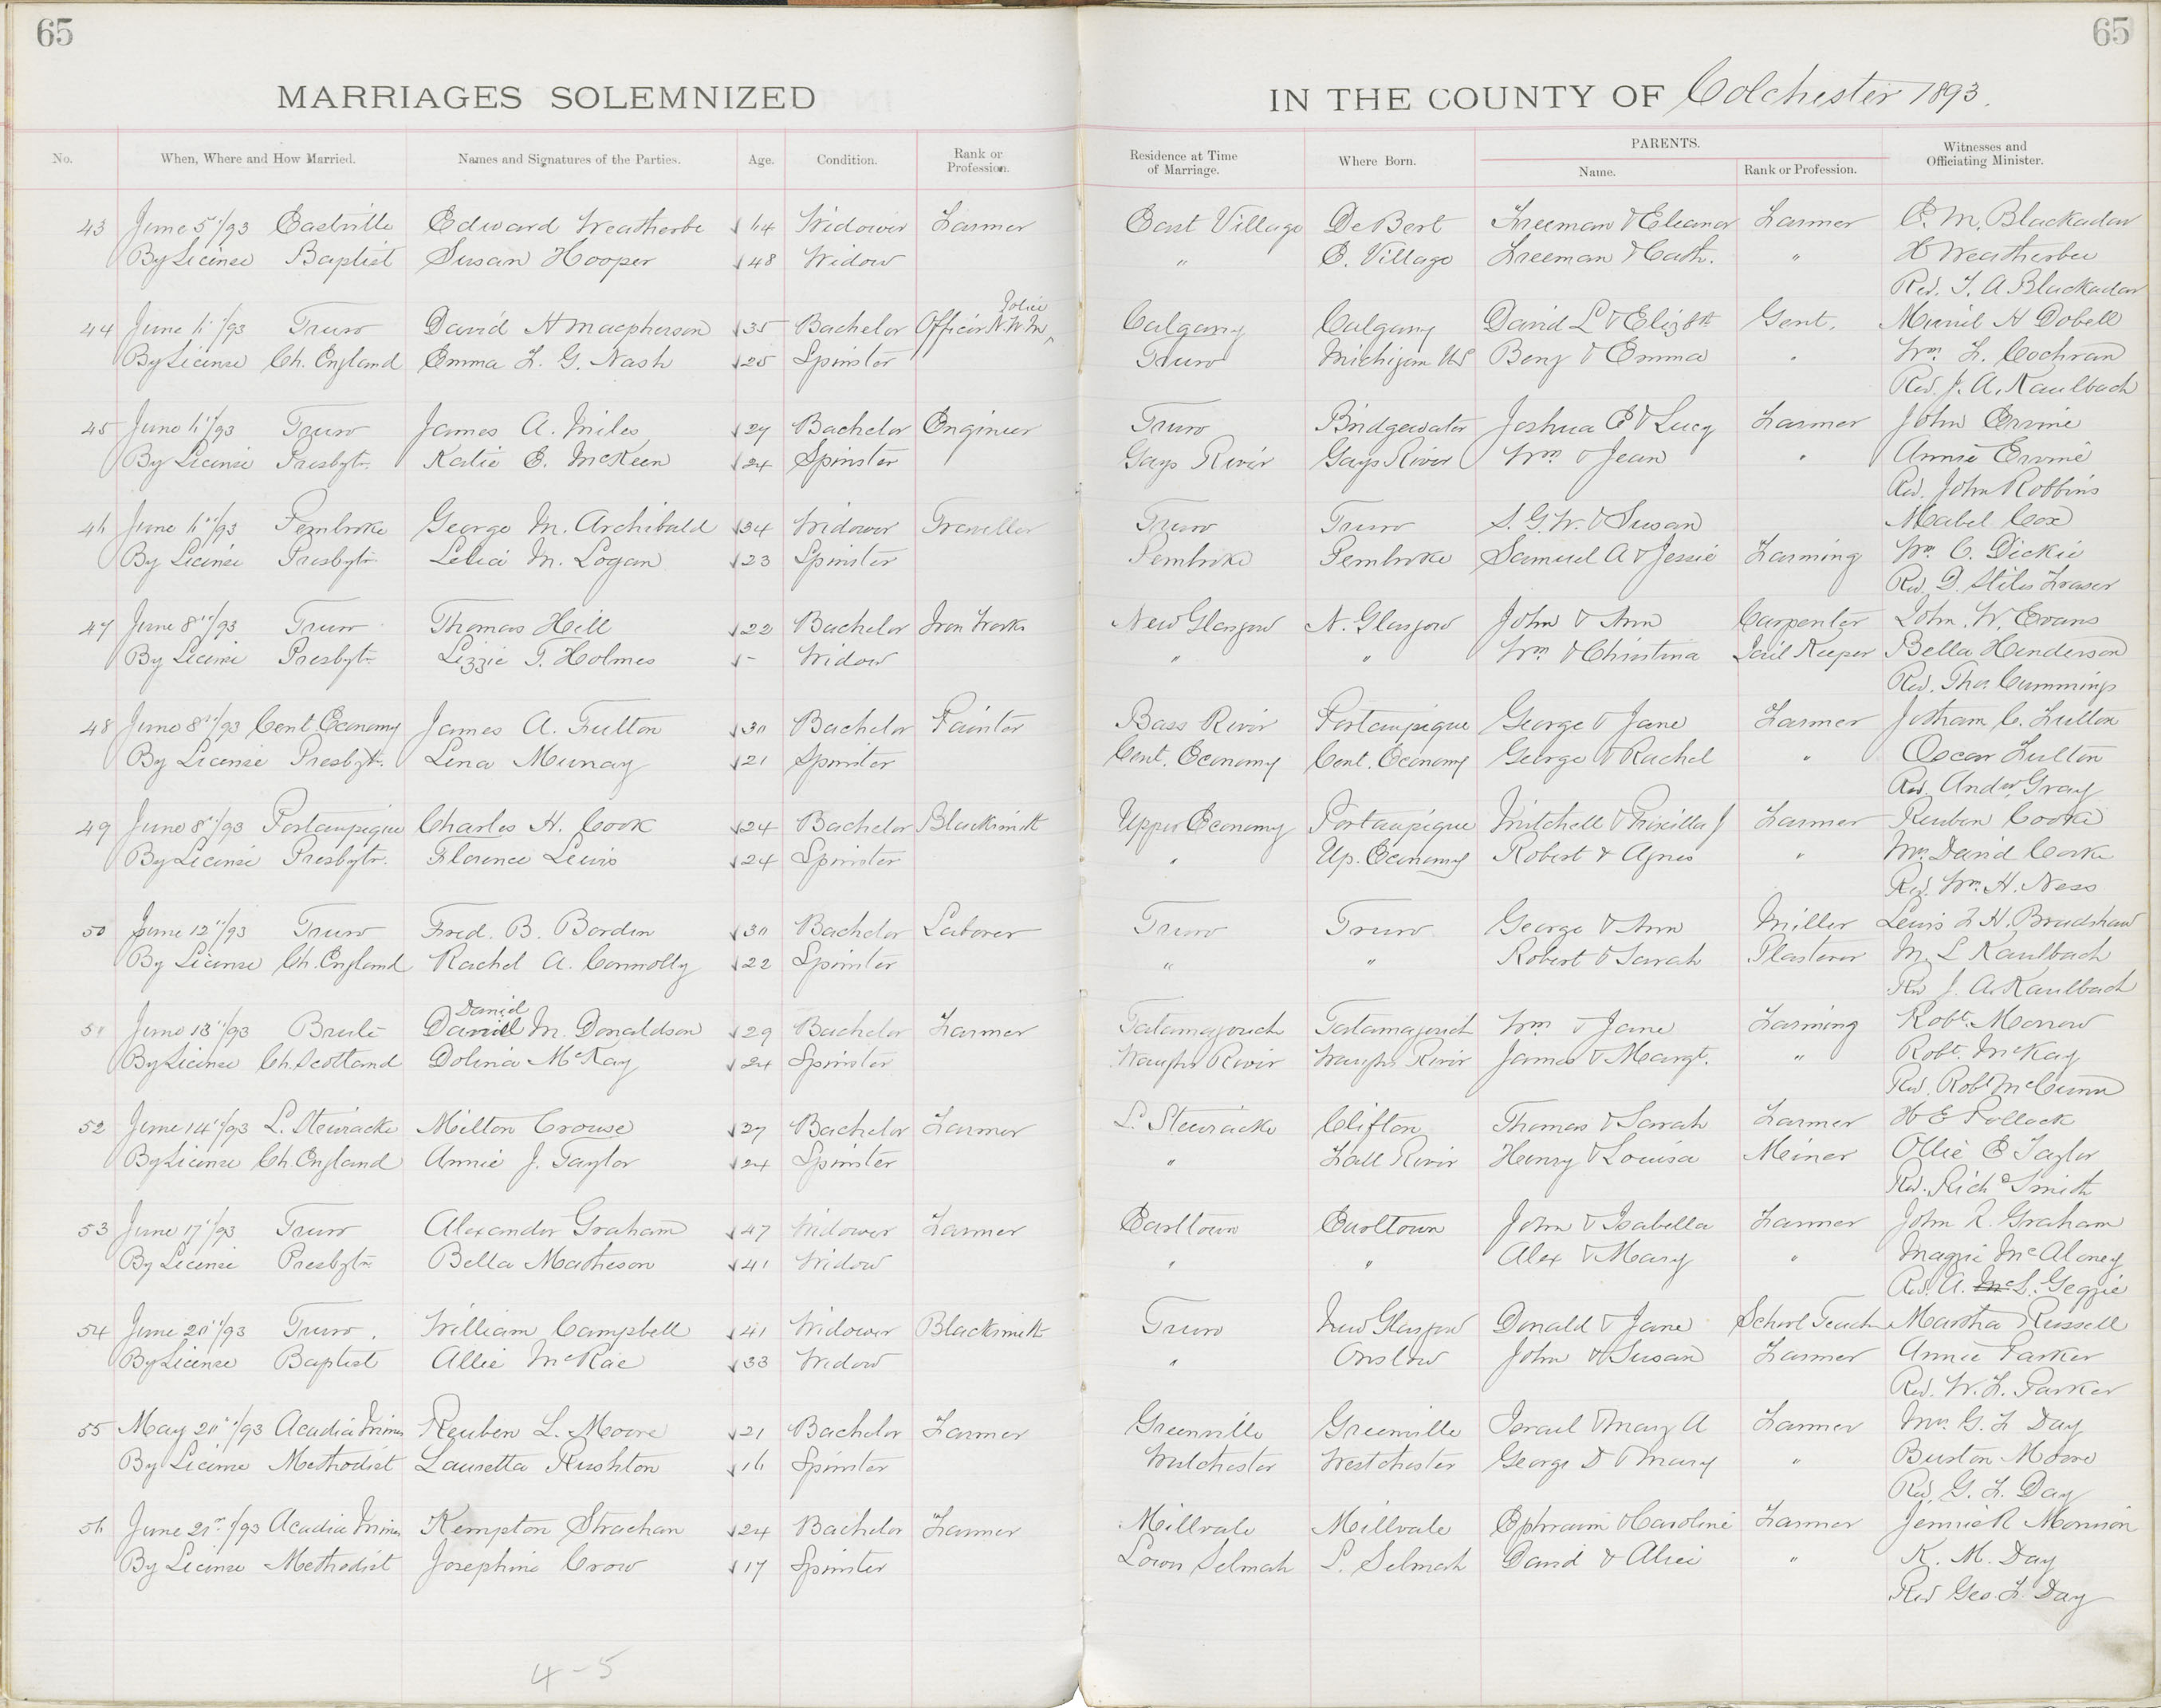 65
65
MARRIAGES SOLEMNIZED IN THE COUNTY OF Colchester 1893.
No. When, Where and How Married. Names and Signatures of the Parties. Age. Condition. Rank or Profession. Residence at Time of Marriage. Where Born. PARENTS. Name. Rank or Profession. Witnesses and Officiating Minister.
43 June 5"/93 Eastville Edward Weatherbe 64 Widower Farmer East Village DeBert Freeman & Eleanor Farmer E. M. Blackadar
By License Baptist Susan Hooper 48 Widow " E. Village Freeman & Cath. " H Weatherbee
Rev. T. A. Blackadar
Police
44 June 6"/93 Truro David H Macpherson 35 Bachelor Officer N.W.M. Calgary Calgary David L & Elizbth Gent. Muriel H Dobell
By License Ch. England Emma F. G. Nash 25 Spinster Truro Michigan US Benj & Emma " Wm. F. Cochran
Rev. J. A. Kaulbach
45 June 6"/93 Truro James A. Miles 27 Bachelor Engineer Truro Bridgewater Joshua E & Lucy Farmer John Ervine
By License Presbytn. Katie E. McKeen 24 Spinster Gays River Gays River Wm & Jean " Annie Ervine
Rev. John Robbins
46 June 6"/93 Pembroke George M. Archibald 34 Widower Traveller Truro Truro S. G. W. & Susan Mabel Cox
By License Presbytn Lelia M. Logan 23 Spinster Pembroke Pembroke Samuel A & Jessie Farming Wm. C. Dickie
Rev. D. Stiles Fraser
47 June 8"/93 Truro Thomas Hill 22 Bachelor Iron Works New Glasgow N. Glasgow John & Ann Carpenter John. W. Evans
By License Presbytn Lizzie T. Holmes - Widow " " Wm & Christina Jail Keeper Bella Henderson
Rev. Thos Cummings
48 June 8"/93 Cent. Economy James A. Fulton 30 Bachelor Painter Bass River Portaupique George & Jane Farmer Jotham C. Fulton
By License Presbyt. Lena Murray 21 Spinster Cent. Economy Cent. Economy George & Rachel " Oscar Fulton
Rev. Andw. Gray
49 June 8"/93 Portaupique Charles H. Cook 24 Bachelor Blacksmith Upper Economy Portaupique Mitchell & Priscilla J Farmer Reuben Cooke
By License Presbytn. Florence Lewis 24 Spinster " Up. Economy Robert & Agnes " Mrs. David Cooke
Rev. Wm. H. Ness
50 June 12"/93 Truro Fred. B. Borden 30 Bachelor Laborer Truro Truro George & Ann Miller Lewis F. H. Bradshaw
By License Ch. England Rachel A. Connolly 22 Spinster " " Robert & Sarah Plasterer M. L Kaulbach
Rev J. A. Kaulbach
Daniel
51 June 13"/93 Brule Daniel M. Donaldson 29 Bachelor Farmer Tatamagouch Tatamagouch Wm & Jane Farming Robt. Morrow
By License Ch. Scotland Dolina McKay 24 Spinster Waughs River Waughs River James & Margt. " Robt. McKay
Rev. Robt McCunn
52 June 14"/93 L. Stewiacke Milton Crouse 27 Bachelor Farmer L. Stewiacke Clifton Thomas & Sarah Farmer H E Pollock
By License Ch. England Annie J. Taylor 24 Spinster " Fall River Henry & Louisa Miner Ollie E Taylor
Rev. Richd Smith
53 June 17"/93 Truro Alexander Graham 47 Widower Farmer Earltown Earltown John & Isabella Farmer John R. Graham
By License Presbytn Bella Matheson 41 Widow " " Alex & Mary " Maggie McAloney
Rev. A. Mc L. Geggie
54 June 20"/93 Truro. William Campbell 41 Widower Blacksmith Truro New Glasgow Donald & Jane School Teach Martha Russell
By License Baptist Allie McRae 33 Widow " Onslow John & Susan Farmer Annie Parker
Rev. W. F. Parker
55 May 20"/93 Acadia Mines Reuben L. Moore 21 Bachelor Farmer Greenville Greenville Israel & Mary A Farmer Mrs. G. F Day
By License Methodist Lauretta Rushton 16 Spinster Westchester Westchester George D & Mary " Burton Moore
Rev. G. F. Day
56 June 21st/93 Acadia Mines Kempton Strachan 24 Bachelor Farmer Millvale Millvale Ephraim & Caroline Farmer Jennie R Morrison
By License Methodist Josephine Crow 17 Spinster Lower Selmah L. Selmah David & Alice " K. M. Day
Rev Geo. F. Day
4-5